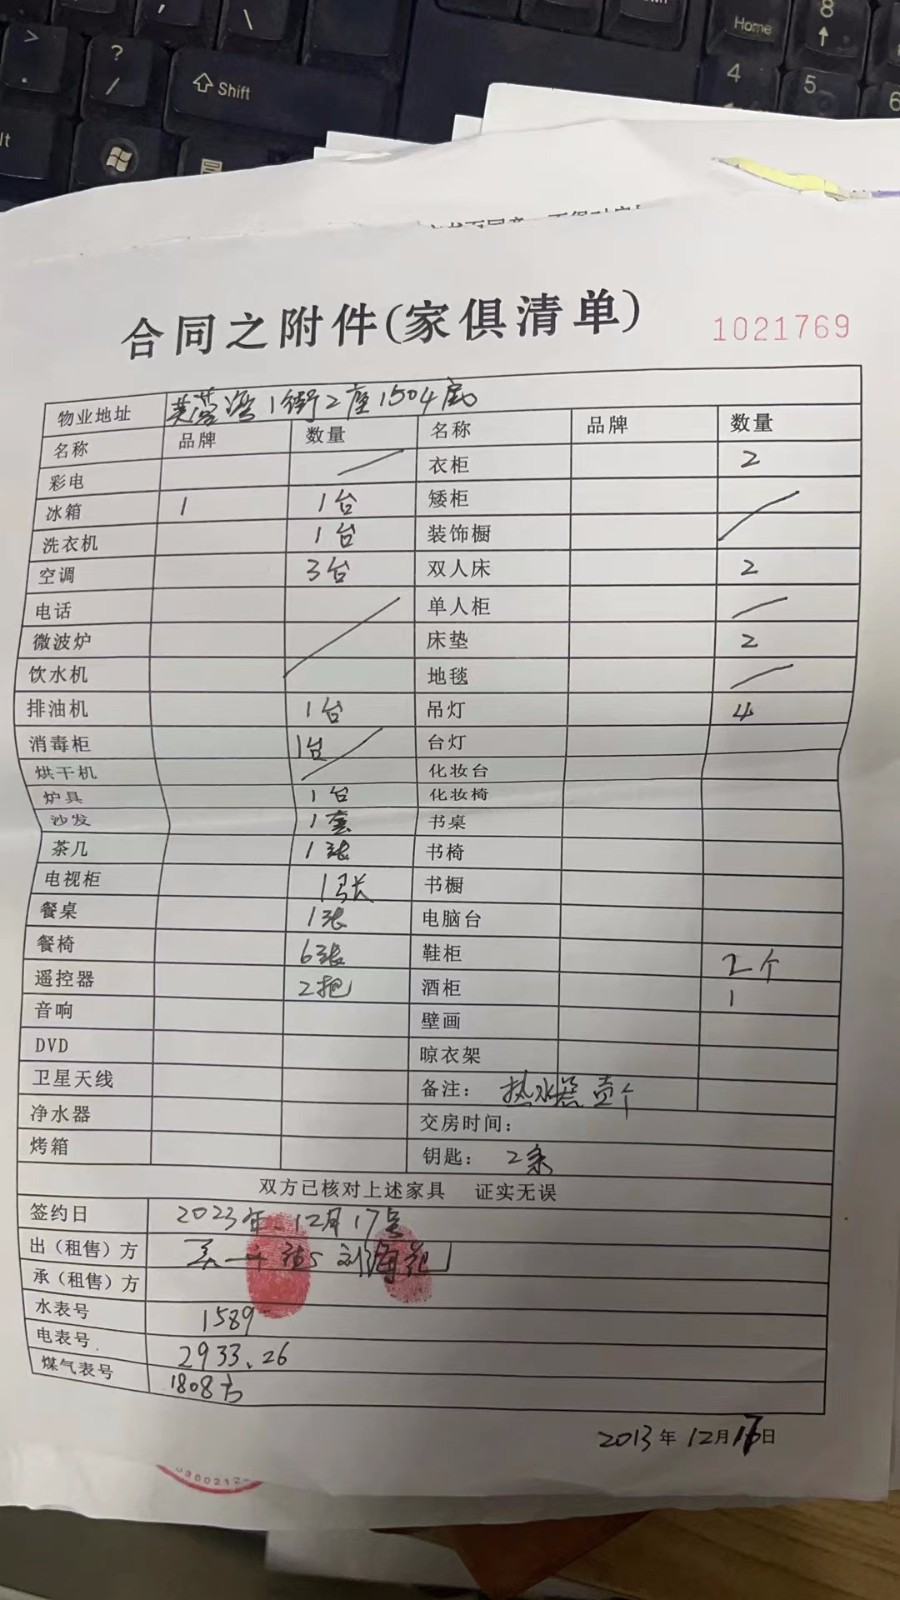 Home
8
>
.
?
/
\
Shift
4
5
6
合同之附件(家俱清单)
1021769
物业地址 芙蓉湾1街2座1504底
名称 品牌 数量 名称 品牌 数量
彩电 衣柜 2
冰箱 1 1台 矮柜
洗衣机 1台 装饰橱
空调 3台 双人床 2
电话 单人柜
微波炉 床垫 2
饮水机 地毯
排油机 1台 吊灯 4
消毒柜 1台 台灯
烘干机 化妆台
炉具 1台 化妆椅
沙发 1套 书桌
茶几 1张 书椅
电视柜 1张 书橱
餐桌 1张 电脑台
餐椅 6张 鞋柜 2个
遥控器 2把 酒柜 1
音响 壁画
DVD 晾衣架
卫星天线 备注: 热水器壹个
净水器 交房时间:
烤箱 钥匙: 2条
双方已核对上述家具 证实无误
签约日 2023年.12月17号
出（租售）方 刘海
承（租售）方
水表号 1589
电表号. 2933.26
煤气表号 1808方
2013年12月17日